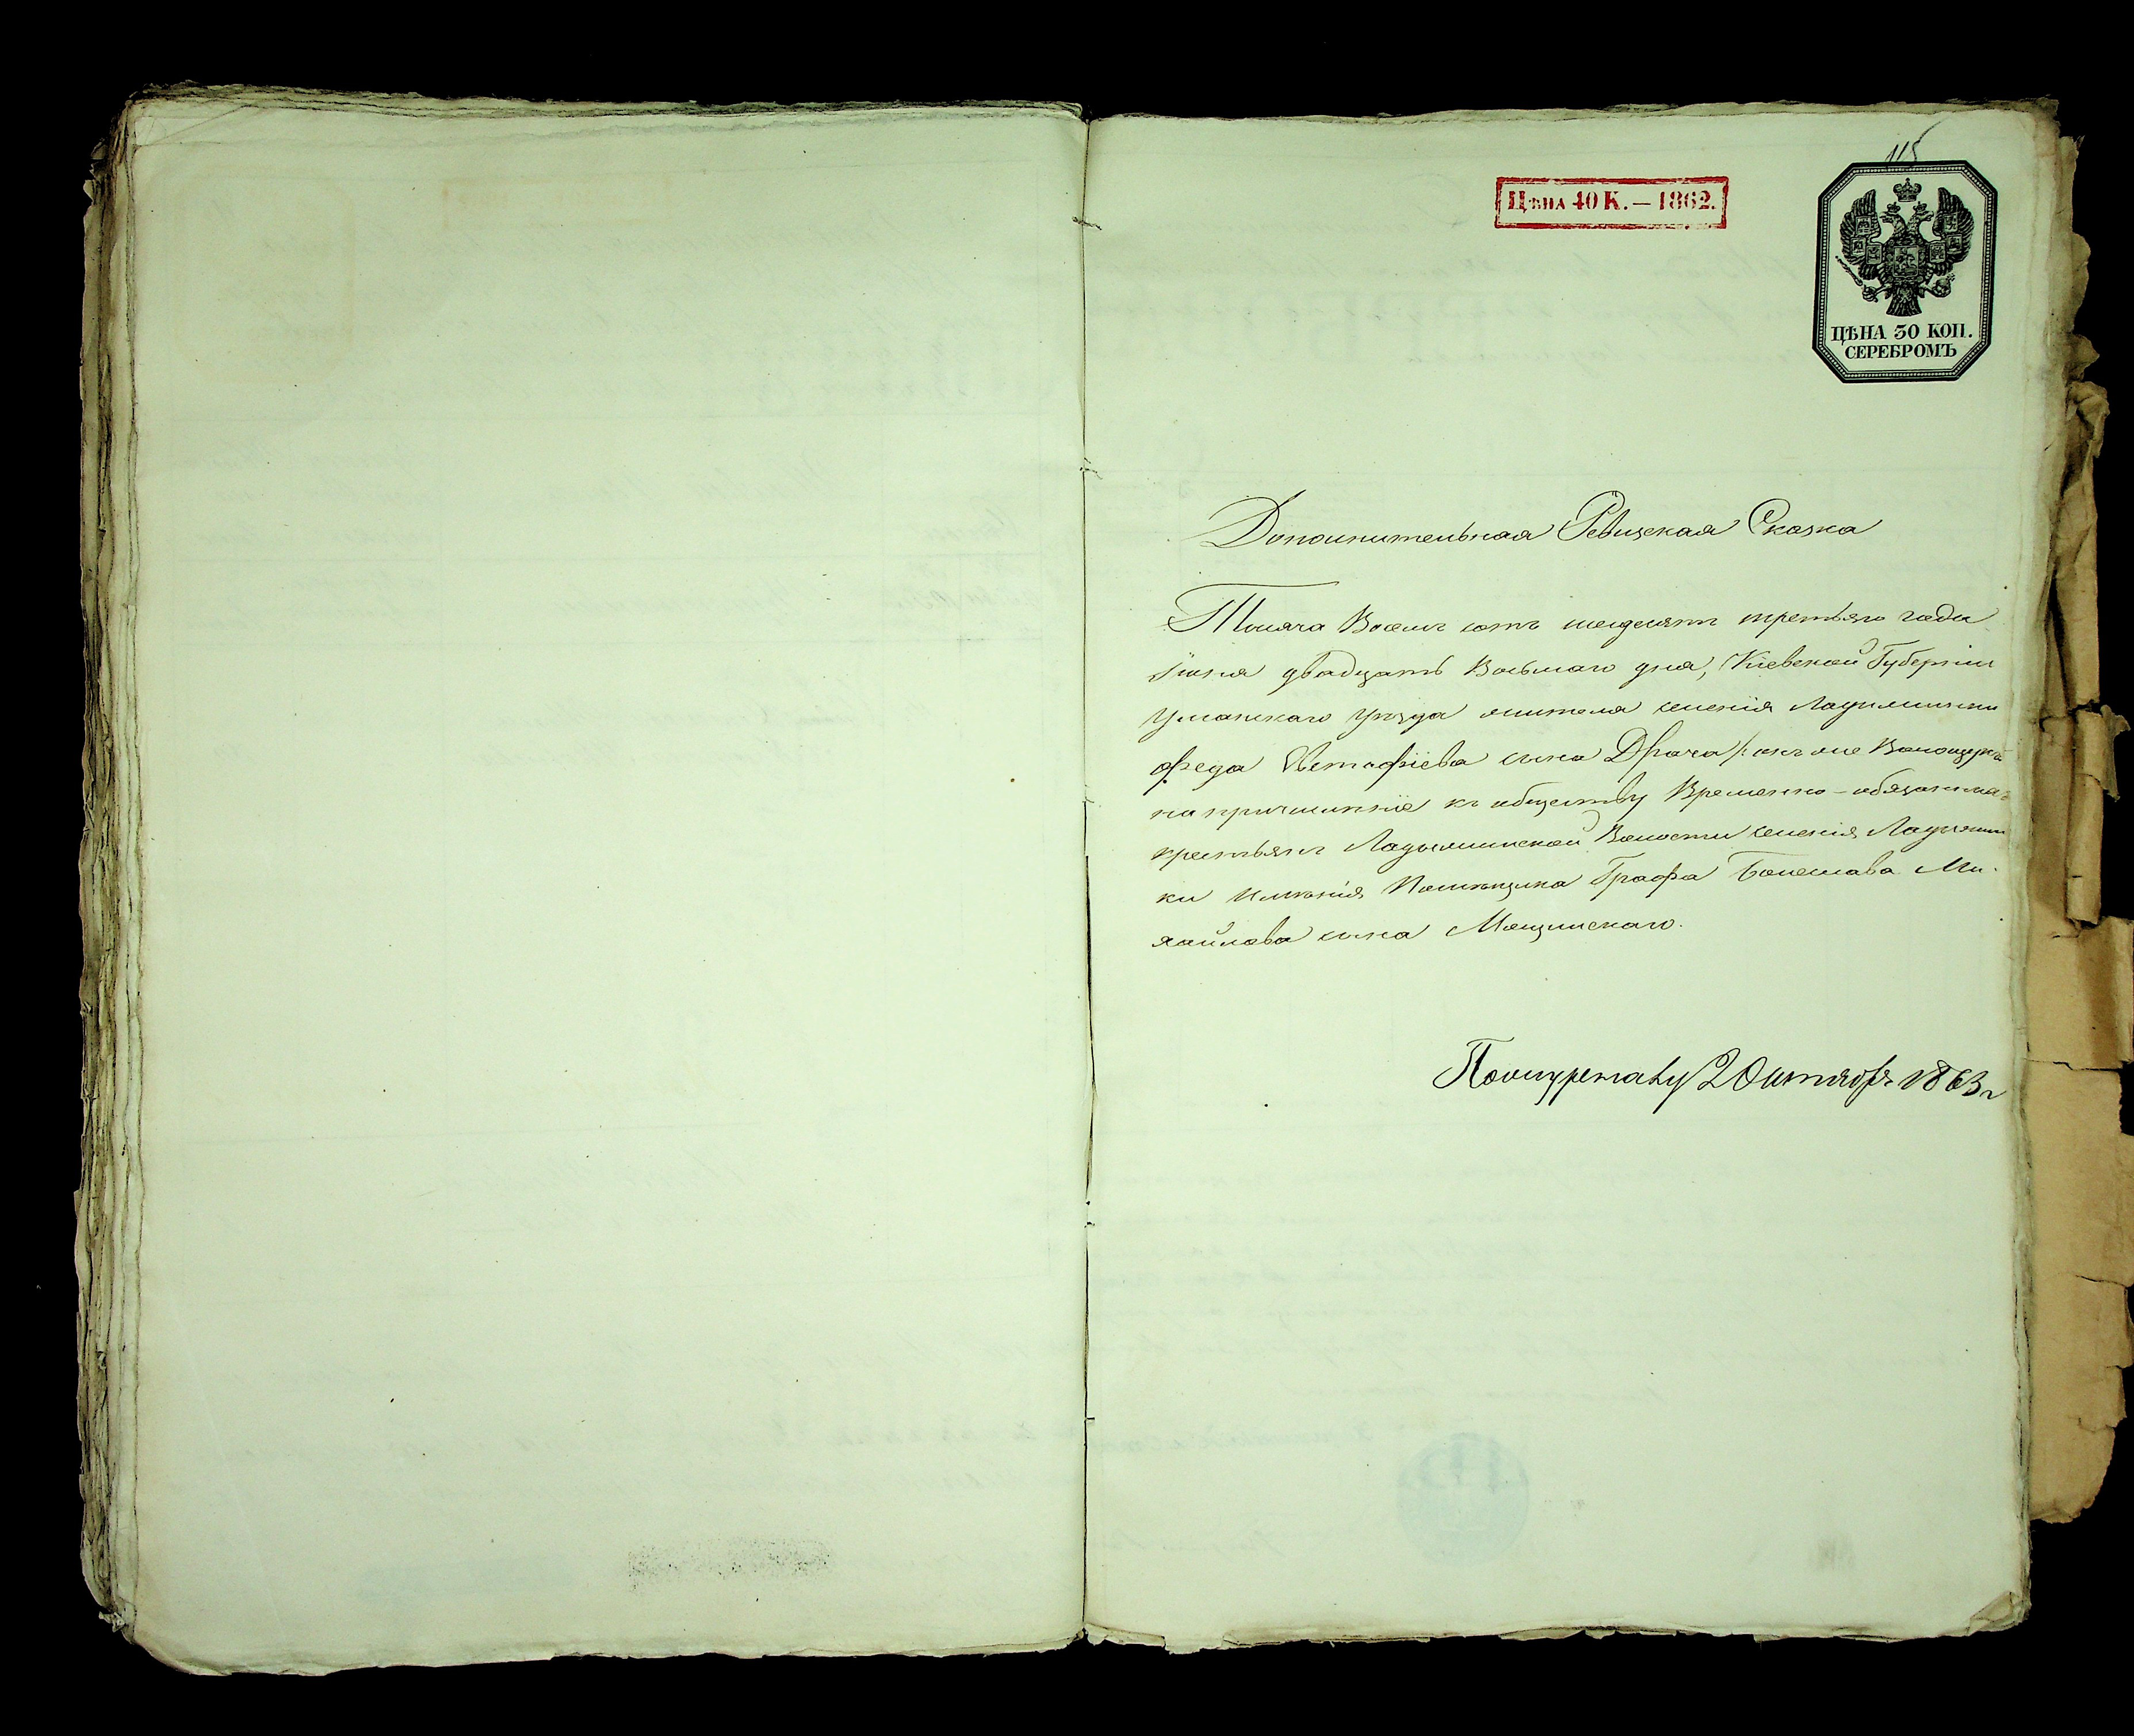 115
Цѣна 40 К. — 1862.
ЦѢНА 30 КОП.
СЕРЕБРОМЪ
Дополнительная Ревизская Сказка
Тысяча Восемь сотъ шесдесятъ третьяго года
Іюня двадцать Восьмаго дня, Кіевской Губерніи
Уманскаго уѣзда жителя селенія Ладыжинки
Евстафіева сына Драча
на причисленіе къ обществу Временно-обязанныхъ
крестьянъ Ладыжинской Волости селенія Ладыжин
ки имѣнія Помѣщика Графа Болеслава Ми-
хайлова сына Мощинскаго.
2 Октября 1863 г